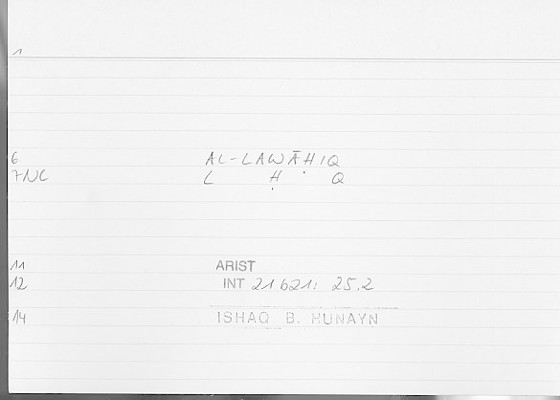 1
6 AL-LAWĀḤIQ
7NC L Ḥ Q
11 ARIST
12 INT 21b21: 25.2
14 ISHAQ B. HUNAYN